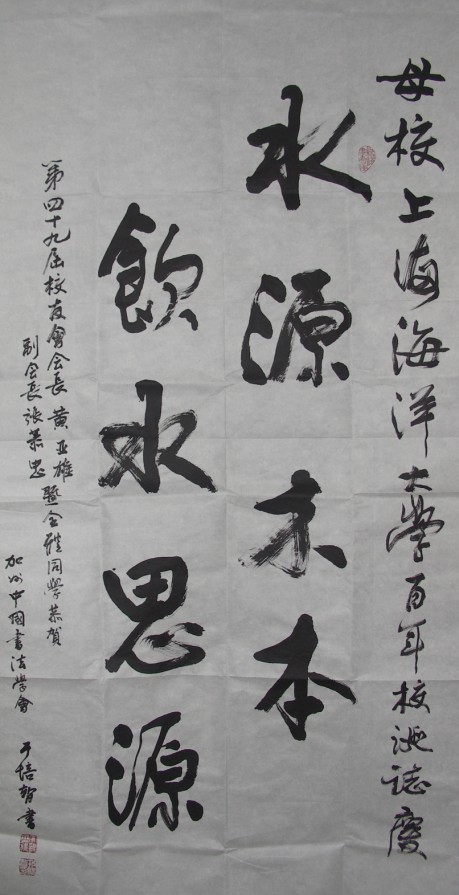 母校上海海洋大學百年校誕誌慶
水源木本
飲水思源
第四十九屆校友會会長黄亚雄暨全體同學恭賀
副会長張慕忠
加州中國書法學會 于培智書